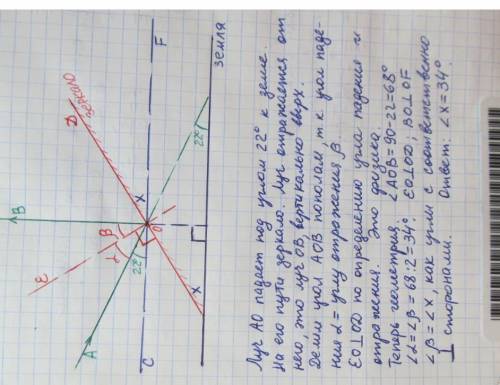 B
F
A
E
22°
α
β
D
зеркало
x
O
C
x
22°
земля
Луч АО падает под углом 22° к земле.
На его пути зеркало. Луч отражается от
него, это луч ОВ, вертикально вверх.
Делим угол АОВ пополам, т к угол паде-
ния α = углу отражения β
ЕО⊥ОD по определению угла падения и
отражения. Это физика.
Теперь геометрия. ∠АОВ=90-22=68°
∠α=∠β=68:2=34°. ЕО⊥ОD; ВО⊥ОF
∠β=∠x, как углы с соответственно
⊥ сторонами. Ответ. ∠x=34°